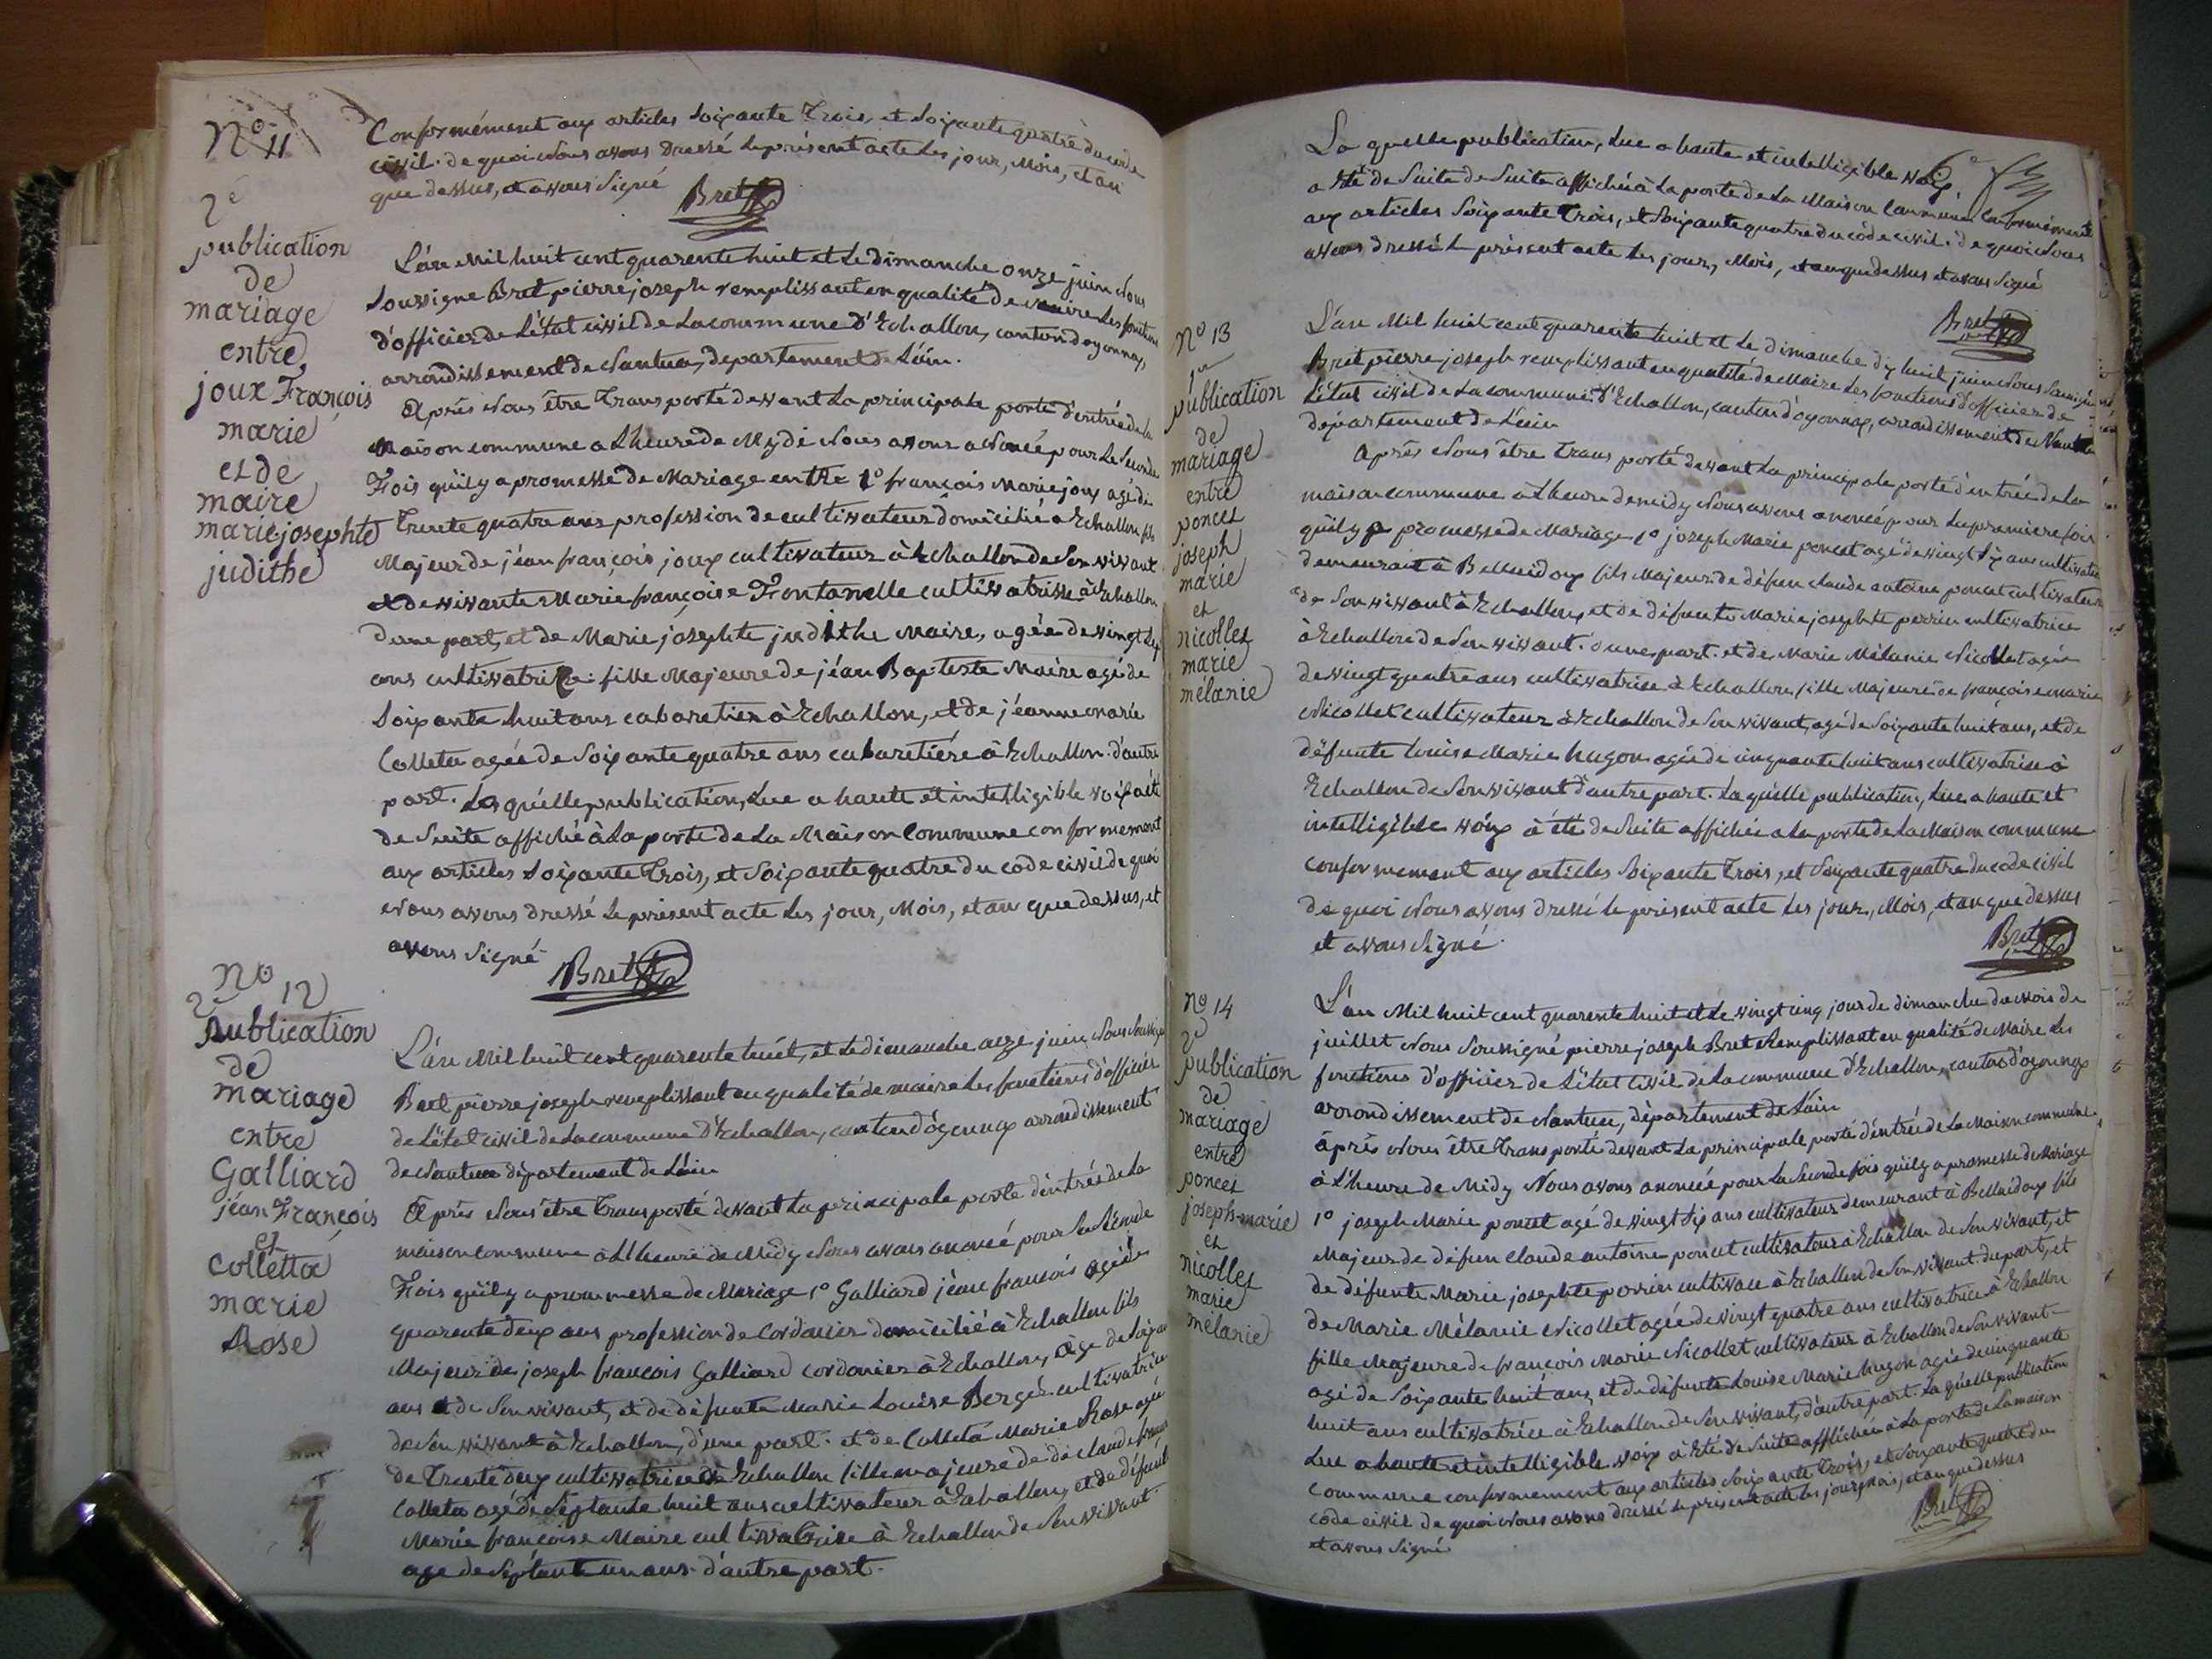 Conformément aux articles Soixante Trois, et Soixante quatre du code
civil. de quoi Nous avons Dressé le présent acte Les jour, Mois, et an
que dessus, et avons Signé
Bret
N° 11
2e
publication
de
mariage
entre
joux François
marie
et de
maire
marie josephte
judithe
L'an Mil huit cent quarente huit et Le dimanche onze juin Nous
Soussigne Bret pierre joseph remplissant en qualité de maire Les fonctions
d'officier de L'état civil de La commune d'Echallon, canton d'oyonnax,
arrondissement de Nantua, departement de L'ain.
Après Nous être Transporté devant La principale porte d'entrée de La
Maison commune a L'heure de Mydi Nous avons anoncé pour Le Seconde
Fois qu'il y a promesse de Mariage entre 1° françois Marie joux agé de
Trente quatre ans profession de cultivateur domicilié a Echallon fils
Majeur de jéan françois joux cultivateur à Echallon de Son vivant
et de vivante Marie françoise Fontanelle cultivatrisse à Echallon
d'une part, et de Marie josephte judithe Maire, agée de vingt Six
ans cultivatrice. fille Majeure de jéan Bapteste Maire agé de
Soixante huit ans cabaretier à Echallon, et de jéanne Marie
Colleta agée de Soixante quatre ans cabaretière à Echallon. d'autre
part. Laquelle publication, Lue a haute et intelligible voix a été
de Suite affiché à La porte de La Maison Commune conformement
aux articles Soixante Trois, et Soixante quatre du code civil de quoi
Nous avons dressé Le présent acte Les jour, Mois, et an que dessus, et
avons Signé
Bret
N° 12
2e
publication
de
mariage
entre
Galliard
jéan François
et
Colletta
marie
Rose
L'an Mil huit cent quarente huit, et Le dimanche onze juin, Nous Soussigné
Bret pierre joseph remplissant en qualité de maire Les fonctions d'officier
de L'état civil de La commune d'Echallon, canton d'ôyonnax arrondissement
de Nantua département de L'ain
Après Nous être Transporté devant La principale porte d'entrée de La
maison commune a L'heure de Midy Nous avons anoncé pour La Séconde
Fois qu'il y a prommesse de Mariage 1° Galliard jéan françois agé de
quarente deux ans profession de Cordonier domicilié à Echallon fils
Majeur de joseph françois Galliard cordonier à Echallon, âge de
ans et de Son vivant, et de défunte Marie Louise Bergé cultivatrice
de Son vivant à Echallon, d'une part. et de Colleta Marie Rose agée
de Trente deux cultivatrice à Echallon fille majeure de claude
Colleta agé de Séptante huit ans cultivateur à Echallon, et de défunte
Marie françoise Maire cultivatrice à Echallon de Son vivant.
age de Séptante un ans. d'autre part.
La quelle publication, Lue a haute et intelligible voix,
a été de Suite de Suite affichée à La porte de La Maison Commune Conformément
aux articles Soixante Trois, et Soixante quatre du code civil. de quoi Nous
avons dressé Le présent acte Les jour, Mois, et an que dessus et avons Signé
Bret
6e
N° 13
1re
publication
de
mariage
entre
poncet
joseph
marie
et
nicollet
marie
mélanie
L'an Mil huit cent quarente huit et Le dimanche dix huit juin Nous Soussigné
Bret pierre joseph remplissant en qualité de Maire Les fonctions d'officier de
L'état civil de La commune d'Echallon, canton d'oyonnax, arrondissement de Nantua
département de L'ain
Après Nous être Transporté devant La principale porte d'entrée de La
maison commune a L'heure de midy Nous avons anoncé pour La premiere fois
qu'il y a promesse de Mariage 1° joseph Marie poncet agé de vingt Six ans cultivateur
demeurant à Belleidoux fils Majeur de défun claude antoine poncet cultivateur
de Son vivant à Echallon, et de défunte Marie josephte perrin cultivatrice
à Echallon de Son vivant. d'une part. et de Marie Mélanie Nicollet agée
de vingt quatre ans cultivatrice à Echallon, fille Majeure de françois marie
Nicollet cultivateur à Echallon de Son vivant, agé de Soixante huit ans, et de
défunte Louise Marie hugon agée de cinquante huit ans cultivatrice à
Echallon de Son vivant d'autre part. Laquelle publication, Lue a haute et
intelligible voix à été de Suite affichée a La porte de La Maison commune
Conformement aux articles Soixante Trois, et Soixante quatre du code civil
de quoi Nous avons dressé Le présent acte Les jour, Mois, et an que dessus
et avons Signé.
Bret
N° 14
2e
publication
de
mariage
entre
poncet
joseph-marie
et
nicollet
marie
mélanie
L'an Mil huit cent quarente huit et Le vingt cinq jour de dimanche du Mois de
juillet Nous Soussigné pierre joseph Bret Remplissant en qualité de Maire Les
fonctions d'officier de L'état civil de La commune d'Echallon, canton d'oyonnax
arrondissement de Nantua, département de L'ain
âprès Nous être Transporté devant La principale porte d'entrée de La Maison commune
à L'heure de Midy Nous avons anoncée pour La Seconde fois qu'il y a promesse de Mariage
1° joseph Marie poncet agé de vingt Six ans cultivateur demeurant à Belleidoux fils
Majeur de défun claude antoine poncet cultivateur à Echallon de Son vivant, et
de défunte Marie josephte perrin à Echallon de Son vivant. du part, et
de Marie Mélanie Nicollet agée de vingt quatre ans cultivatrice à Echallon
fille Majeure de françois Marie Nicollet cultivateur à Echallon de Son vivant
agé de Soixante huit ans, et de défunte Louise Marie hugon agée de cinquante
huit ans cultivatrice à Echallon de Son vivant, d'autre part. La quelle publication
Lue a haute et intelligible voix à été de Suite affichée à La porte de La maison
Commune conformement aux articles Soixante Trois, et Soixante quatre du
code civil de quoi Nous avons dressé Le présent acte Les jour, Mois, et an que dessus
et avons Signé
Bret